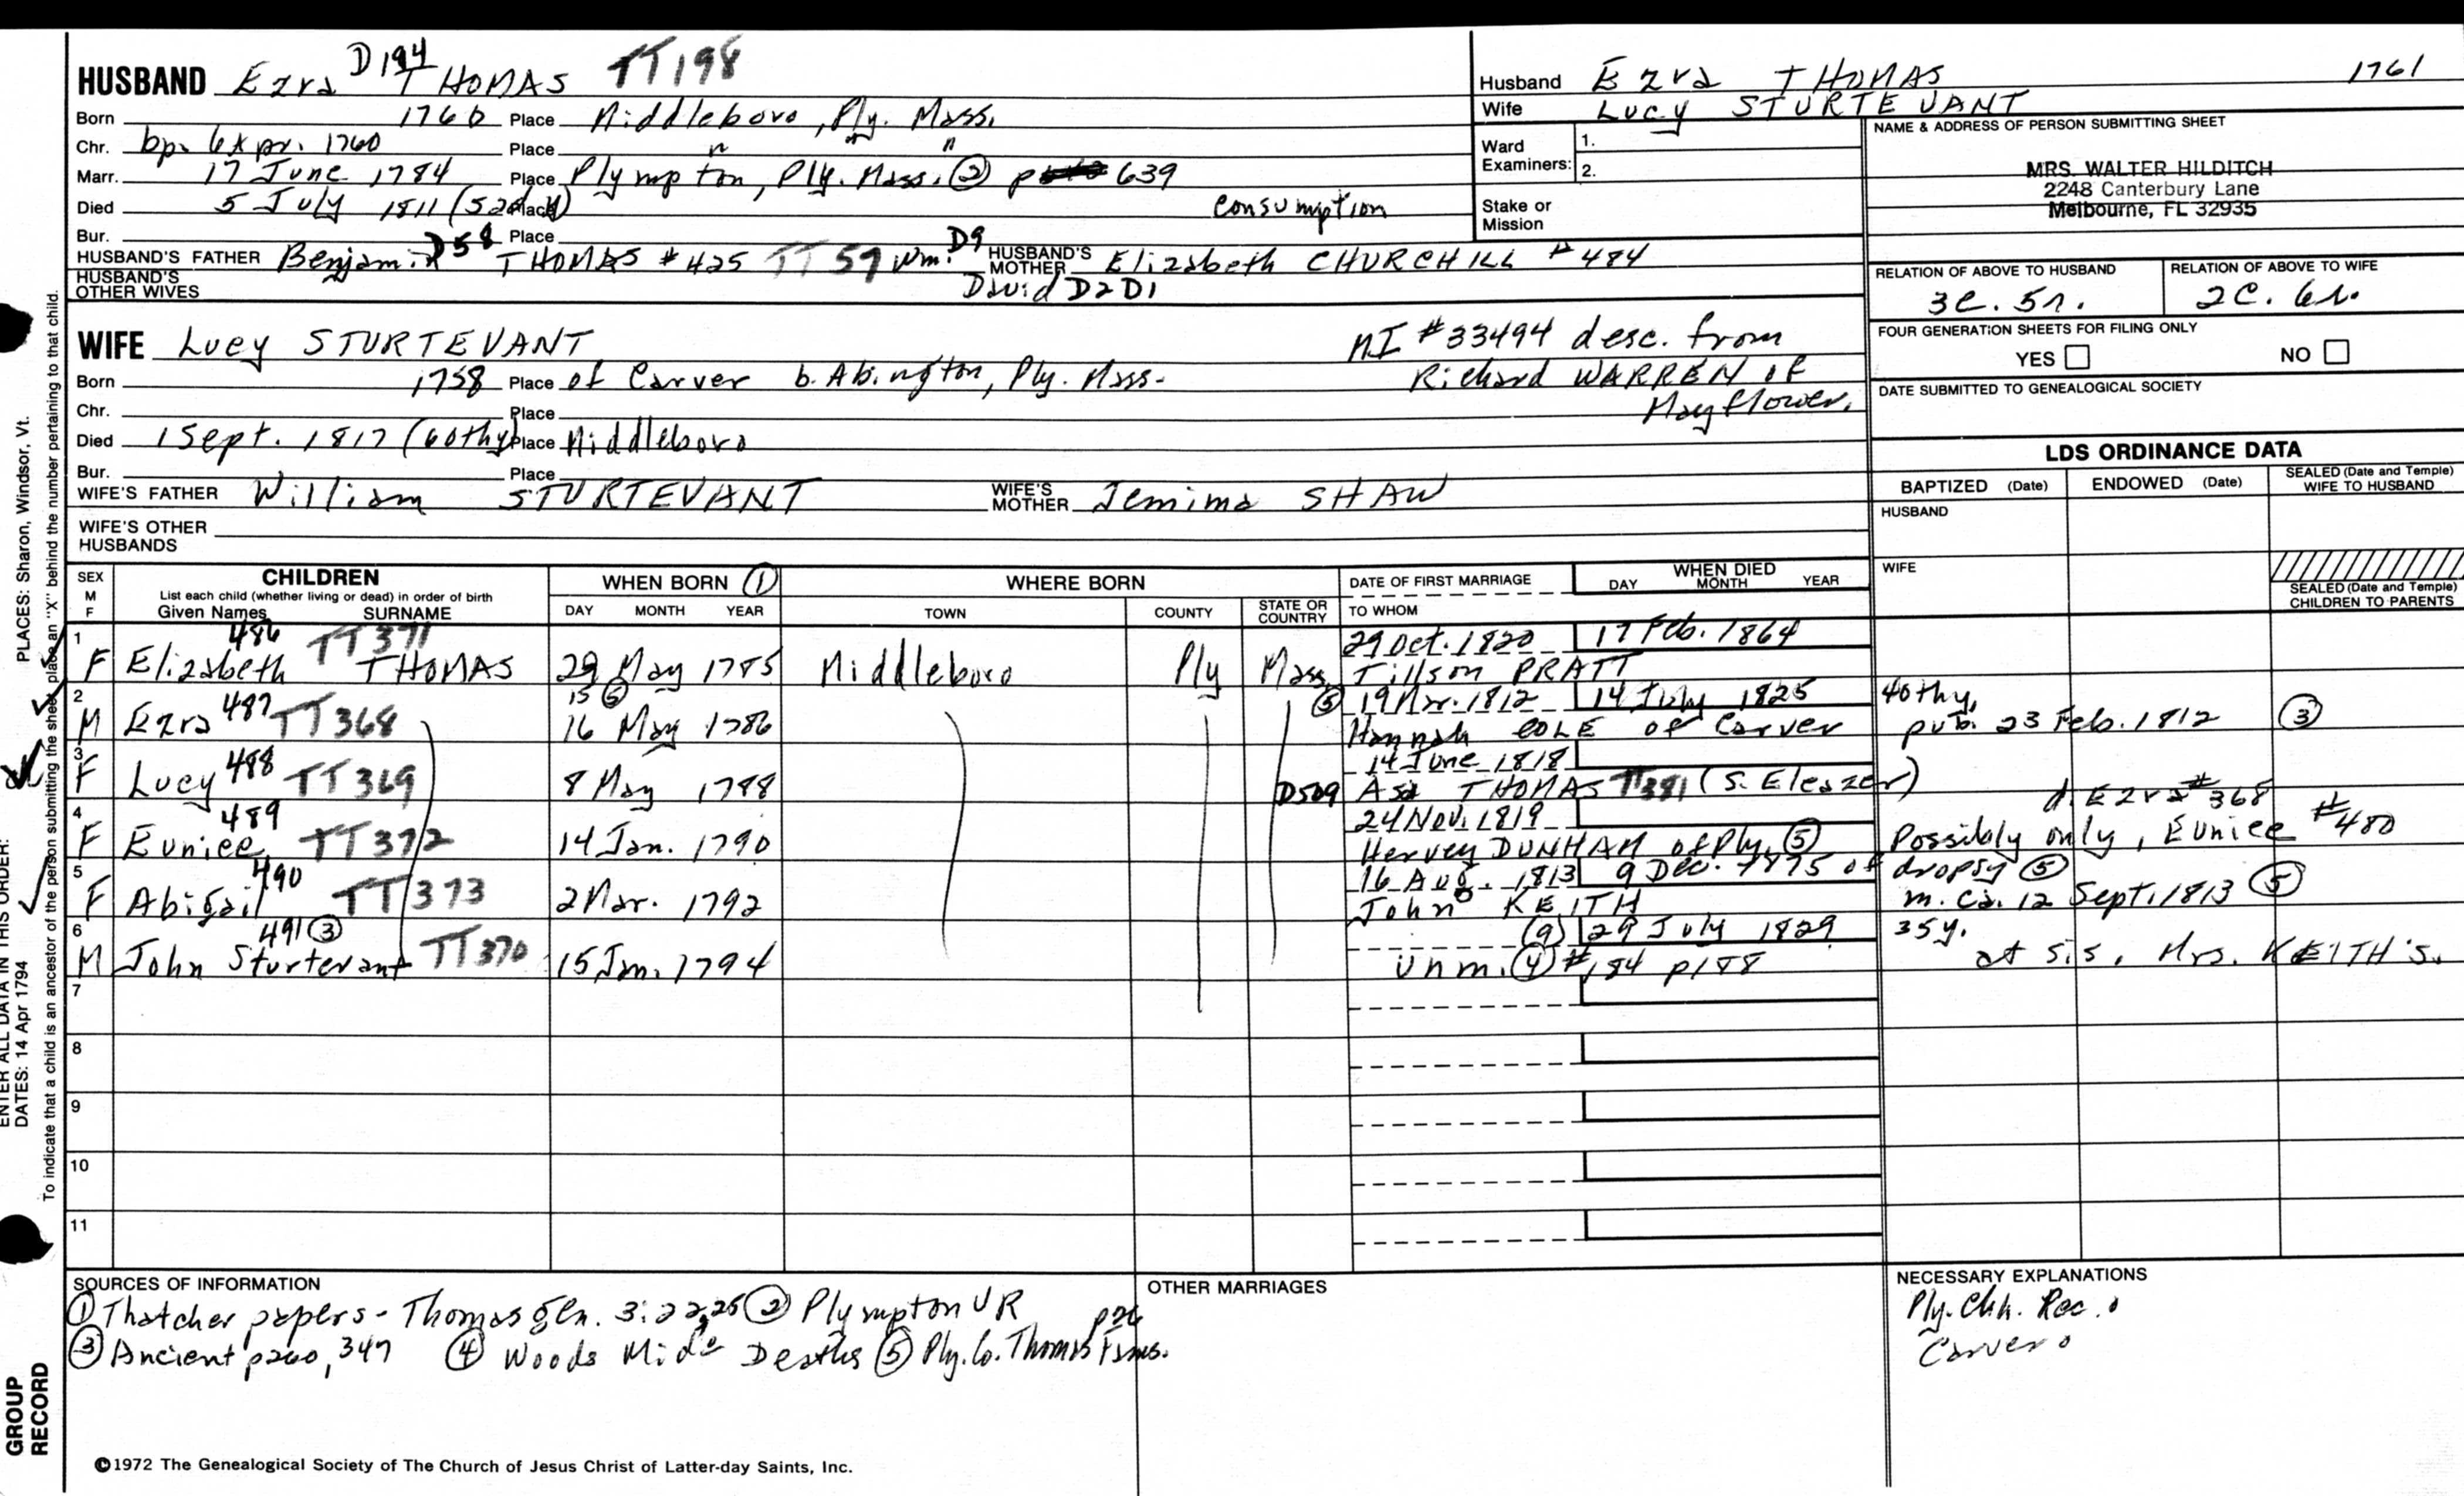 HUSBAND Ezra D194 THOMAS TT198
Born 1760 Place Middleboro, Ply. Mass.
Chr. bp. 6 Apr. 1760 Place " " "
Marr. 17 June 1784 Place Plympton, Ply. Mass. ② p 639
Died 5 July 1811 (52d y) Place consumption
Bur. Place
HUSBAND'S FATHER Benjamin D58 THOMAS #425 TT59 Wm. D9 HUSBAND'S MOTHER Elizabeth CHURCHILL #484
HUSBAND'S OTHER WIVES David D2 D1
WIFE Lucy STURTEVANT MI #33494 desc. from
Born 1758 Place of Carver b. Abington, Ply. Mass. Richard WARREN of
Chr. Place Mayflower.
Died 1 Sept. 1817 (60thy) Place Middleboro
Bur. Place
WIFE'S FATHER William STURTEVANT WIFE'S MOTHER Jemima SHAW
WIFE'S OTHER HUSBANDS
Husband Ezra THOMAS 1761
Wife Lucy STURTEVANT
Ward Examiners: 1.
2.
Stake or Mission
NAME & ADDRESS OF PERSON SUBMITTING SHEET
MRS. WALTER HILDITCH
2248 Canterbury Lane
Melbourne, FL 32935
RELATION OF ABOVE TO HUSBAND RELATION OF ABOVE TO WIFE
3c. 5r. 2c. 6r.
FOUR GENERATION SHEETS FOR FILING ONLY
YES NO
DATE SUBMITTED TO GENEALOGICAL SOCIETY
LDS ORDINANCE DATA
BAPTIZED (Date) ENDOWED (Date) SEALED (Date and Temple) WIFE TO HUSBAND
HUSBAND
WIFE
SEALED (Date and Temple) CHILDREN TO PARENTS
SEX M F CHILDREN WHEN BORN ① WHERE BORN DATE OF FIRST MARRIAGE WHEN DIED
List each child (whether living or dead) in order of birth DAY MONTH YEAR
Given Names SURNAME DAY MONTH YEAR TOWN COUNTY STATE OR COUNTRY TO WHOM
1 486 TT371 29 Oct. 1820 17 Feb. 1864
F Elizabeth THOMAS 29 May 1785 Middleboro Ply Mass. Tillson PRATT
2 487 15 ⑤ ⑤ 19 Mr. 1812 14 July 1825 40thy,
M Ezra TT368 16 May 1786 Hannah COLE of Carver pub. 23 Feb. 1812 ③
3 488 14 June 1818
F Lucy TT369 8 May 1788 D509 Asa THOMAS TT381 (s. Eleazer)
4 489 24 Nov. 1819 d. Ezra #368
F Eunice TT372 14 Jan. 1790 Hervey DUNHAM of Ply. ⑤ Possibly only, Eunice #480
5 490 16 Aug. 1813 9 Dec. 1875 of dropsy ⑤
F Abigail TT373 2 Mar. 1792 John KEITH m. ca. 12 Sept. 1813 ⑤
6 491 ③ (9) 29 July 1829 35y.
M John Sturtevant TT370 15 Jan. 1794 Unm. ④ #184 p188 at sis. Mrs. KEITH'S.
7
8
9
10
11
SOURCES OF INFORMATION OTHER MARRIAGES NECESSARY EXPLANATIONS
① Thatcher papers - Thomas gen. 3:22,25 ② Plympton VR
③ Ancient p260, 347 ④ Woods Mid. Deaths ⑤ Ply. Co. Thomas Fams. p26
Ply. Chh. Rec.
Carver
©1972 The Genealogical Society of The Church of Jesus Christ of Latter-day Saints, Inc.
PLACES: Sharon, Windsor, Vt.
ENTER ALL DATA IN THIS ORDER:
DATES: 14 Apr 1794
To indicate that a child is an ancestor of the person submitting the sheet, place an "X" behind the number pertaining to that child.
GROUP
RECORD